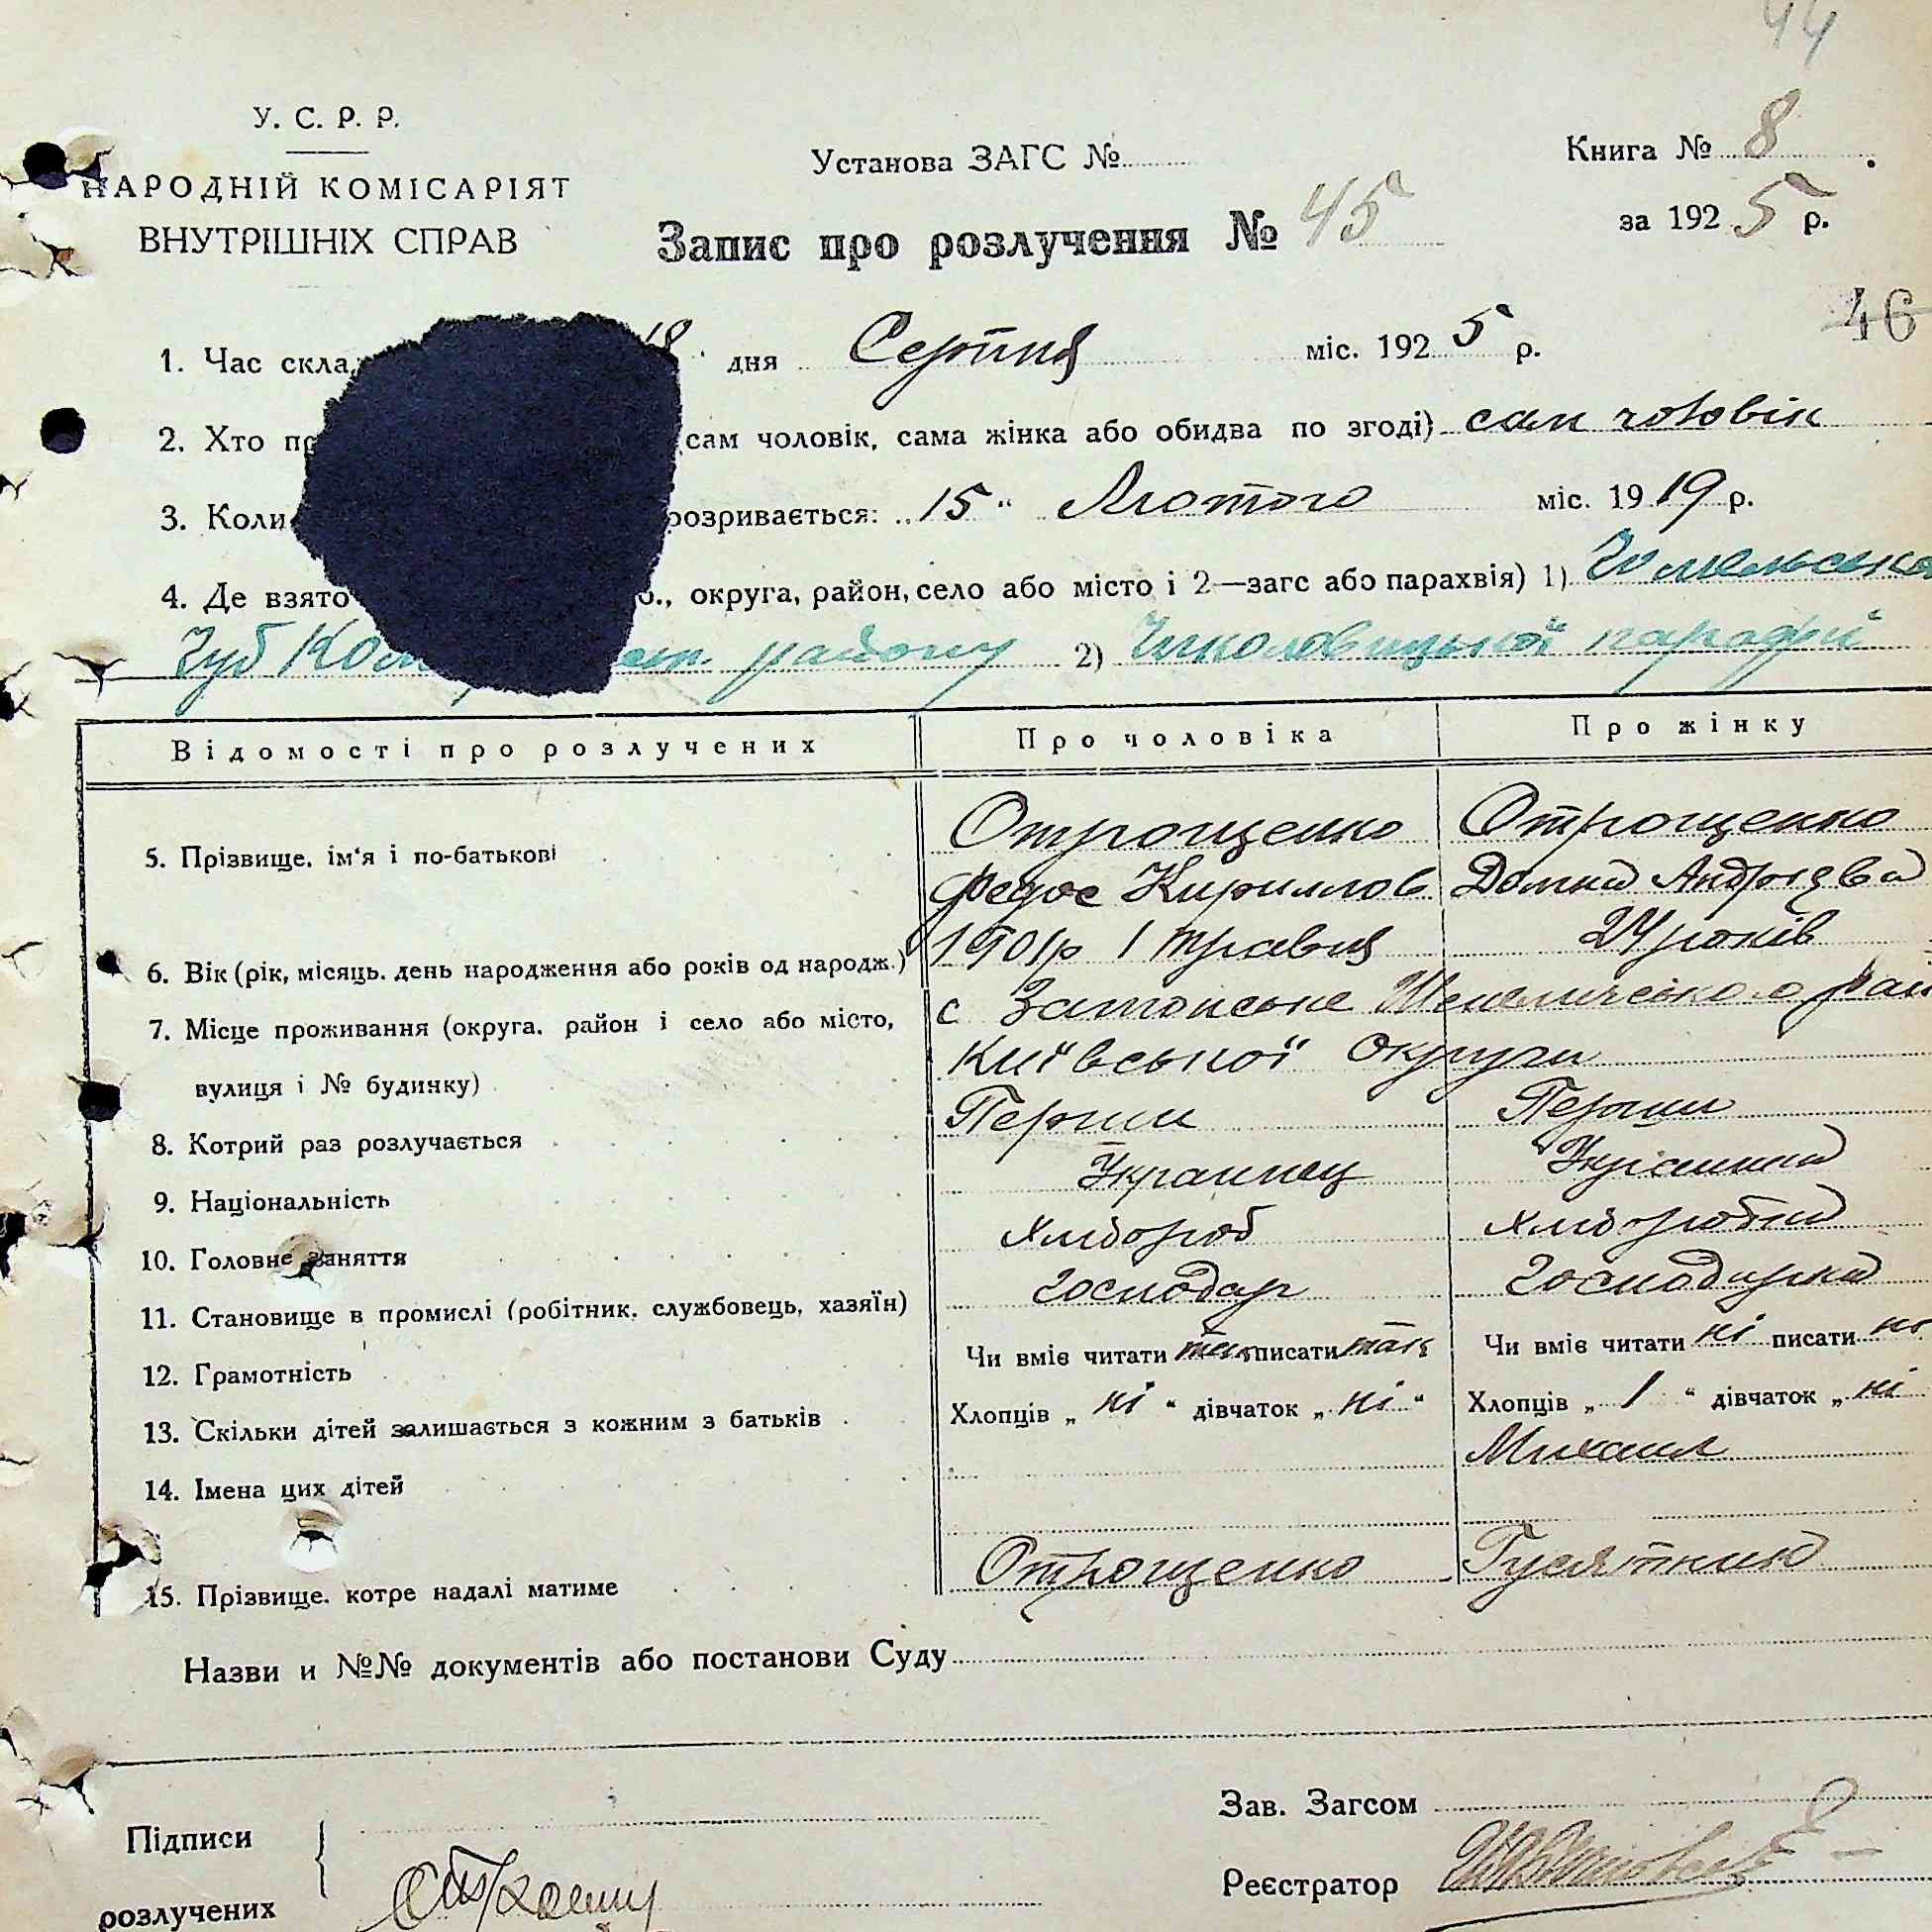 44
У. С. Р. Р.
НАРОДНІЙ КОМІСАРІЯТ
ВНУТРІШНІХ СПРАВ
Установа ЗАГС №
Запис про розлучення № 45
Книга № 8
за 1925 р.
46
1. Час скла 18 дня Серпня міс. 1925 р.
2. Хто пр сам чоловік, сама жінка або обидва по згоді) сам чоловік
3. Коли розривається: 15 " Лютого міс. 1919 р.
4. Де взято б., округа, район, село або місто і 2—загс або парахвія) 1) Гомельська
Губ району 2) парафії
Відомості про розлучених Про чоловіка Про жінку
5. Прізвище, ім'я і по-батькові Отрощенко Отрощенко
Федос Кириллов Домна Андріева
6. Вік (рік, місяць, день народження або років од народж.) 1901р 1 травня 24 років
7. Місце проживання (округа, район і село або місто, с Затонське Шепеличського рай
вулиця і № будинку) Київської Округи
8. Котрий раз розлучається Перши Перши
9. Національність Украинец Украинка
10. Головне заняття Хлібороб Хліборобка
11. Становище в промислі (робітник, службовець, хазяїн) Господар Господарка
12. Грамотність Чи вміє читати так писати так Чи вміє читати ні писати ні
13. Скільки дітей залишається з кожним з батьків Хлопців „ ні “ дівчаток „ ні “ Хлопців „ 1 “ дівчаток „ ні
14. Імена цих дітей Михаил
15. Прізвище, котре надалі матиме Отрощенко
Назви и №№ документів або постанови Суду
Підписи
розлучених
Зав. Загсом
Реєстратор